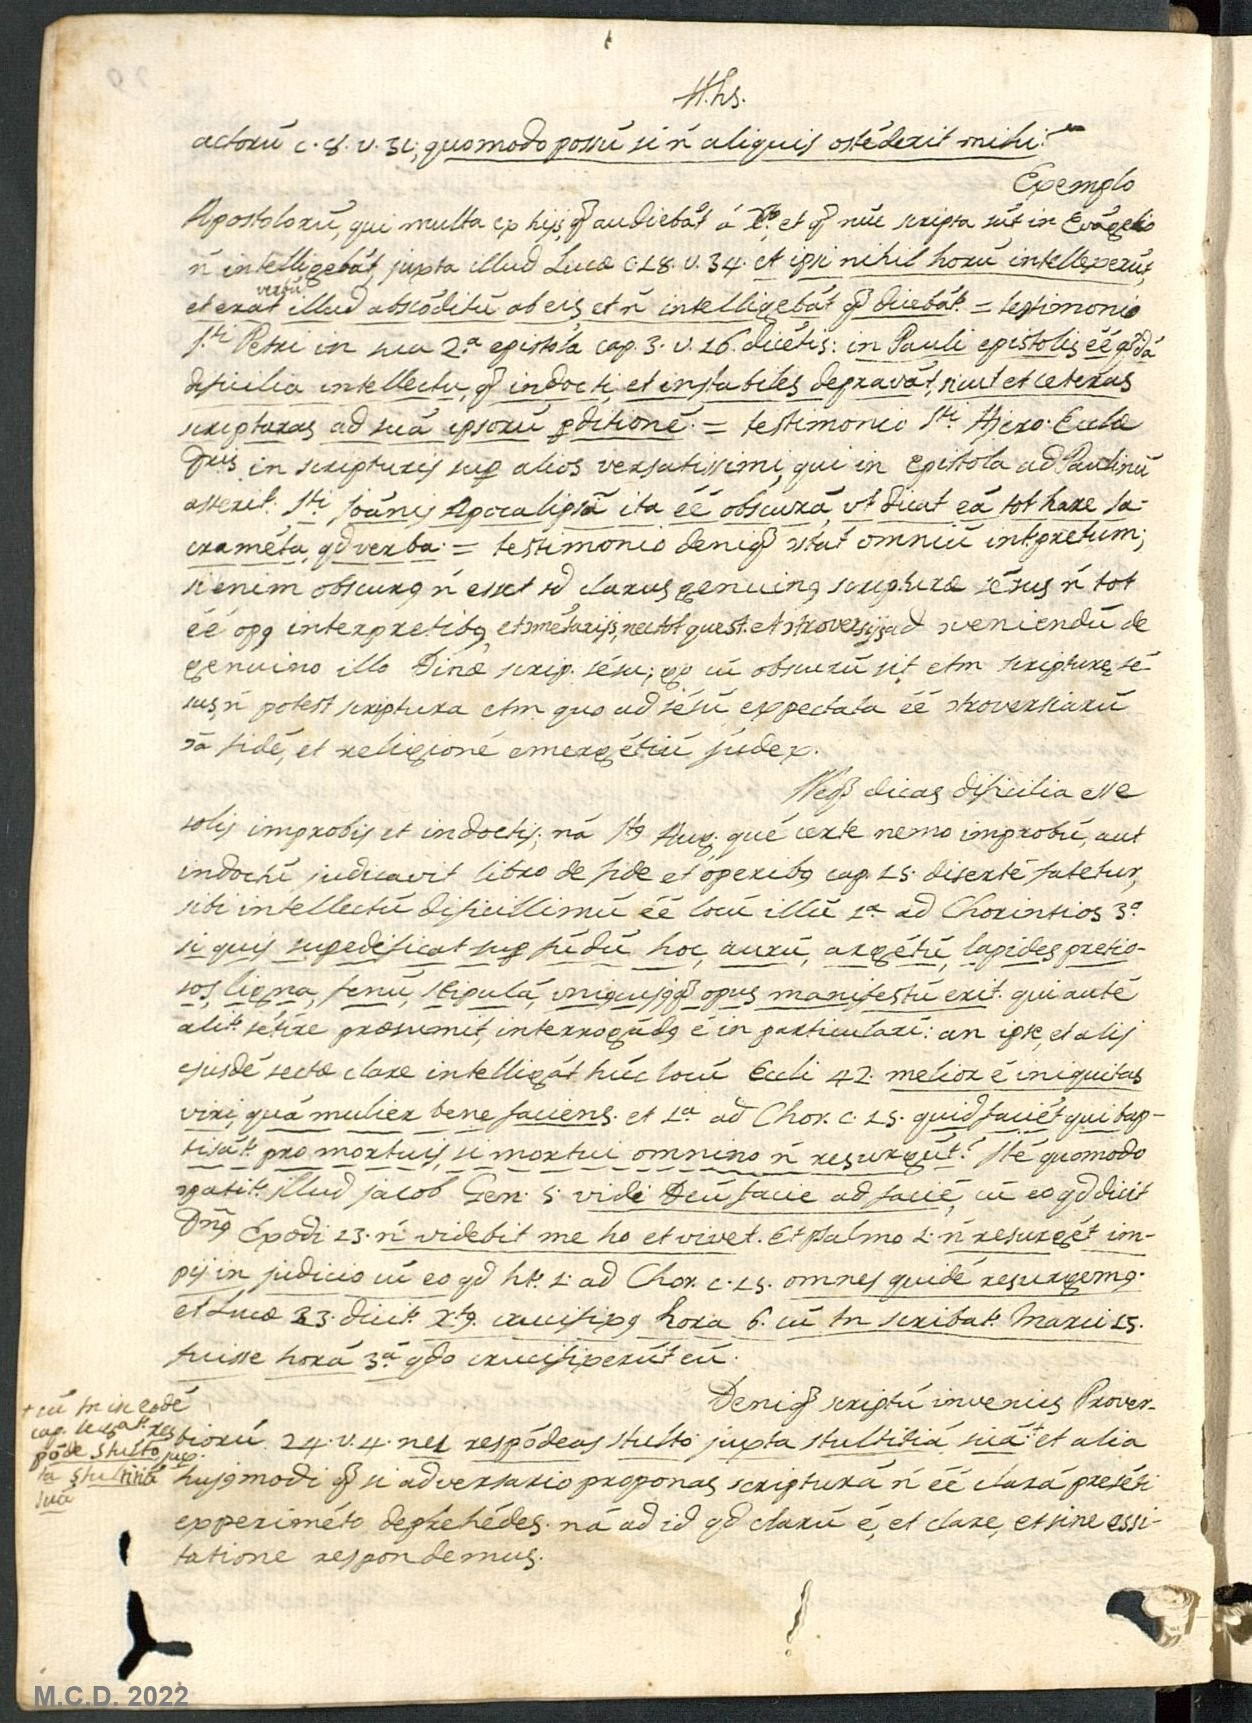 H.hs.
actorũ c. 8. v. 31; quomodo possũ si ñ aliquis ostẽderit mihi?
Exemplo
Apostolorũ, qui multa ex hijs, q̃ audiebãt á Xo, et q̃ nũc scripta sũt in Evãgelio
ñ intelligebãt, juxta illud Lucæ c. 18. v. 34. et ipsi nihil horũ intellexerũt,
et erat verbũ illud abscõditũ ab eis, et ñ intelligebãt q̃ dicebãt. = testimonio
Sti Petri in sua 2a epistola cap. 3. v. 16. dicẽtis: in Pauli epistolis eẽ quædã
dificilia intellectu, q̃ indocti, et instabiles depravãt, sicut et ceteras
scripturas ad suã ipsorũ pditionẽ. = testimonio Sti Hiero. Eccla
Dris in scripturis sup alios versatissimi, qui in epistola ad Paulinũ
asserit. Sti Joãnis Apocalipsĩ ita eẽ obscurã, vt dicat eã tot hãre sa-
cramẽta, qd verba. = testimonio deniq̃ stat omniũ intpretum;
si enim obscurus ñ esset sd clarus genuinus scripturæ sẽsus ñ tot
eẽ opus interpretibus, et mẽtarijs, nec tot quest. et troversijs ad veniendũ de
genuino illo Divæ scrip. sẽsu; ergo cũ obscurũ sit etm scripturę sẽ-
sus, ñ potest scriptura etm quo ad sẽsũ expectata eẽ troversiarũ
rã fidẽ, et religionẽ emergẽtiũ judex.
Neq̃ dicas dificilia esse
solis improbis et indoctis; nã Stus Aug. quẽ certe nemo improbũ, aut
indoctũ judicavit libro de fide et operibus cap. 15. disertẽ fatetur,
sibi intellectũ dificillimũ eẽ locũ illũ 1a ad Chorintios 3o
si quis supedificat sup fũdũ hoc, aurũ, argẽtũ, lapides pretio-
sos, ligna, fenũ, stipulã, uniuscujusq̃ opus manifestũ erit. qui autẽ
alit. sẽtire præsumit, interrogãdus e in particulari: an ipse, et alij
ejusdẽ sectæ clare intelligãt hũc locũ Eccli 42. melior ẽ iniquitas
viri, quã mulier bene faciens. et 1a ad Chor. c. 15. quid faciẽt qui bap-
tisãt. pro mortuis, si mortui omnino ñ resurgũt? Itẽ quomodo
patit. illud Jacob Gen. 5. vidi Deũ facie ad faciẽ, cũ eo qd dicit
Dñus Exodi 23. ñ videbit me ho et vivet. Et psalmo 1. ñ resurgẽt im-
pij in judicio cũ eo qd ht. 1. ad Chor. c. 15. omnes quidẽ resurgemus.
et Lucæ 23. dicit. Xtus. crucifixus hora 6. cũ tn scribat. Marci 15.
fuisse horã 3ã qdo crucifixerũt eũ.
Deniq̃ scriptũ invenies Prover-
biorũ 24. v. 4. nes respõdeas stulto juxta stultitiã suã + et alia
hujusmodi q̃ si adversario proponas scripturã ñ eẽ clarã presẽti
experimẽto deprehẽdes. nã ad id qd clarũ ẽ, et clare, et sine essi-
tatione respondemus.
+ cũ tn in eodẽ
cap. legat. res
põde stulto jux
ta stultitiã
suã
M.C.D. 2022